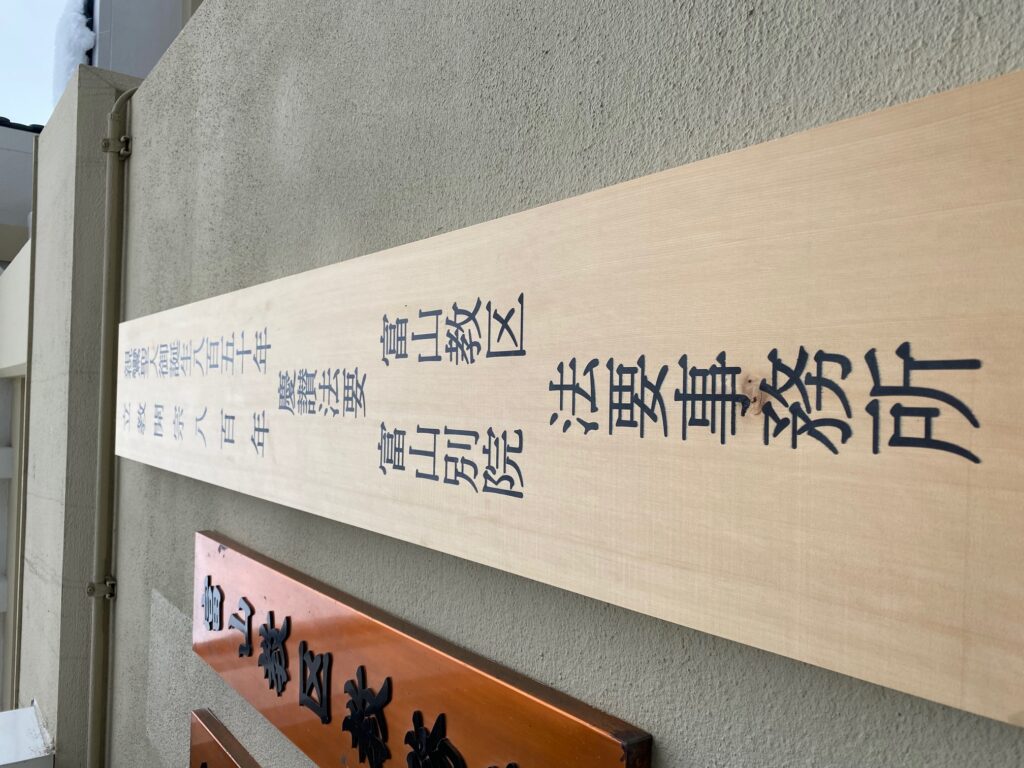 親鸞聖人御誕生八百五十年
立教開宗八百年
慶讃法要
富山教区
富山別院
法要事務所
富山教区教